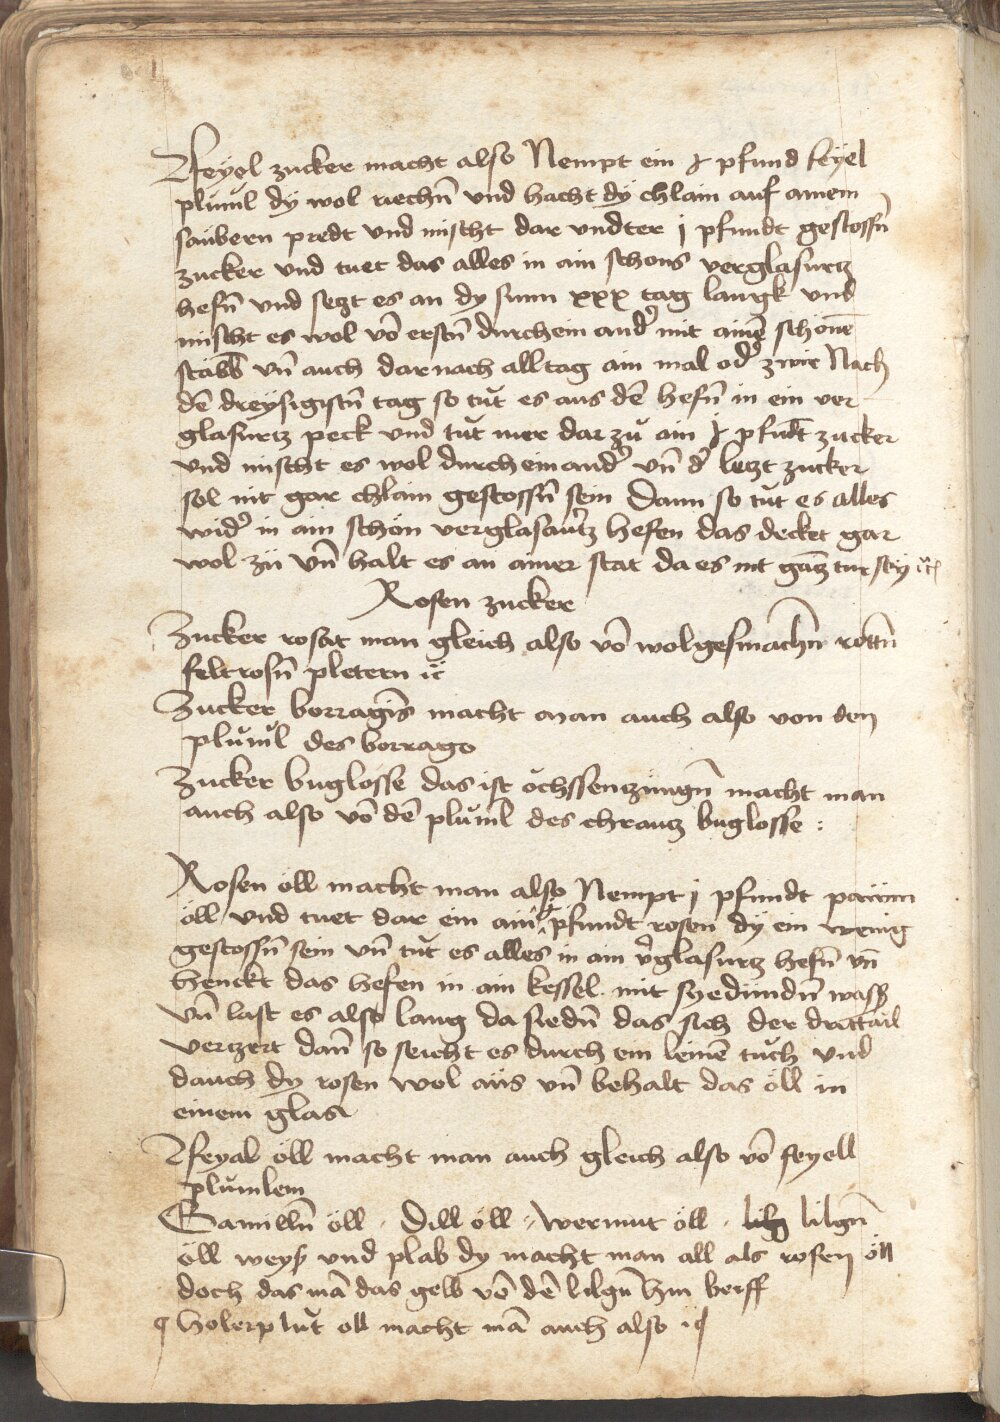 Feyel zucker macht also Nempt ein ɟ pfund feyel
plůml dy wol riechn̄ vnd hacht dy chlain auf ainem
saubern predt vnd mischt dar vndter j pfundt gestossn̄
zucker vnd tuet das alles in ain schons verglasurtz
hefn̄ vnd setzt es an dy sunn xxx tag langk vnd
mischt es wol vō erstn̄ durchein and᾽ mit ainē schonē
stabb vn̄ auch dar nach alltag ain mal od᾽ zwir Nach
dē dreysigistn̄ tag so tůt es aus dē hefn̄ in ein ver
glasurtz peck vnd tůt mer dar zů ain ɟ pfudt zucker
vnd mischt es wol durch einand᾽ vn̄ d᾽ letzt zucker
sol nit gar chlain gestossn̄ sein Dann so tůt es alles
wid᾽ in ain schon verglasaurtz hefen das decket gar
wol zů vn̄ halt es an ainer stat da es nit gātz tur sey ⁊c̄
Rosen zucker
Zucker rosat man gleich also vō wolgesmachn̄ rottn̄
feltrosn̄ pletern ⁊c̄
Zucker borragīs macht man auch also von den
plůml des borrago
Zucker buglosse das ist ochssenzungn̄ macht man
auch also vō dē plůml des chrautz buglosse :
Rosen öll macht man also Nempt j pfundt paum
öll vnd tuet dar ein ain ɟ pfundt rosen dy ein wenig
gestossn̄ sein vn̄ tůt es alles in ain v᾽glasurtz hefn̄ vn̄
henckt das hefen in ain kessel mit syedundn̄ wass᾽
vn̄ last es also lang da siedn̄ das sich der drittail
vertzert dan̄ so seicht es durch ein leinē tuch vnd
dauch dy rosen wol aus vn̄ behalt das öll in
einem glas
Feyal öll macht man auch gleich also vō feyell
plůmlem
Camilln̄ öll · Dill öll · wermut öll · lilgn̄
öll weyss vnd plab dy macht man all als rosen öll
doch das mā das gelb vō dē lilgn̄ hin berff
¶ Holerplůt öll macht mā auch also ⁊c̄